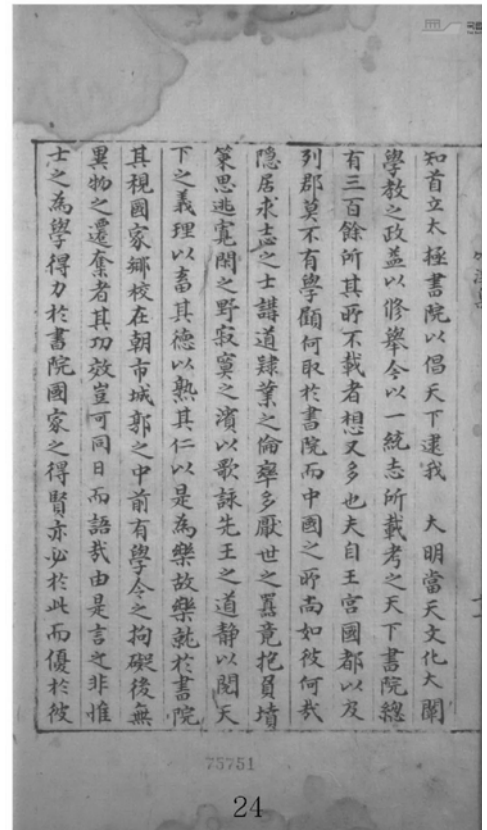 知首立太極書院以倡天下逮我 大明當天文化大闡
學教之政益以修舉今以一統志所載考之天下書院總
有三百餘所其所不載者想又多也夫自王宮國都以及
列郡莫不有學顧何取於書院而中國之所尚如彼何哉
隱居求志之士講道肄業之倫率多厭世之囂竟抱負墳
策思逃寬閑之野寂寞之濱以歌詠先王之道靜以閱天
下之義理以畜其德以熟其仁以是為樂故樂就於書院
其視國家鄉校在朝市城郭之中前有學令之拘礙後無
異物之遷奪者其功效豈可同日而語哉由是言之非惟
士之為學得力於書院國家之得賢亦必於此而優於彼
75751
24